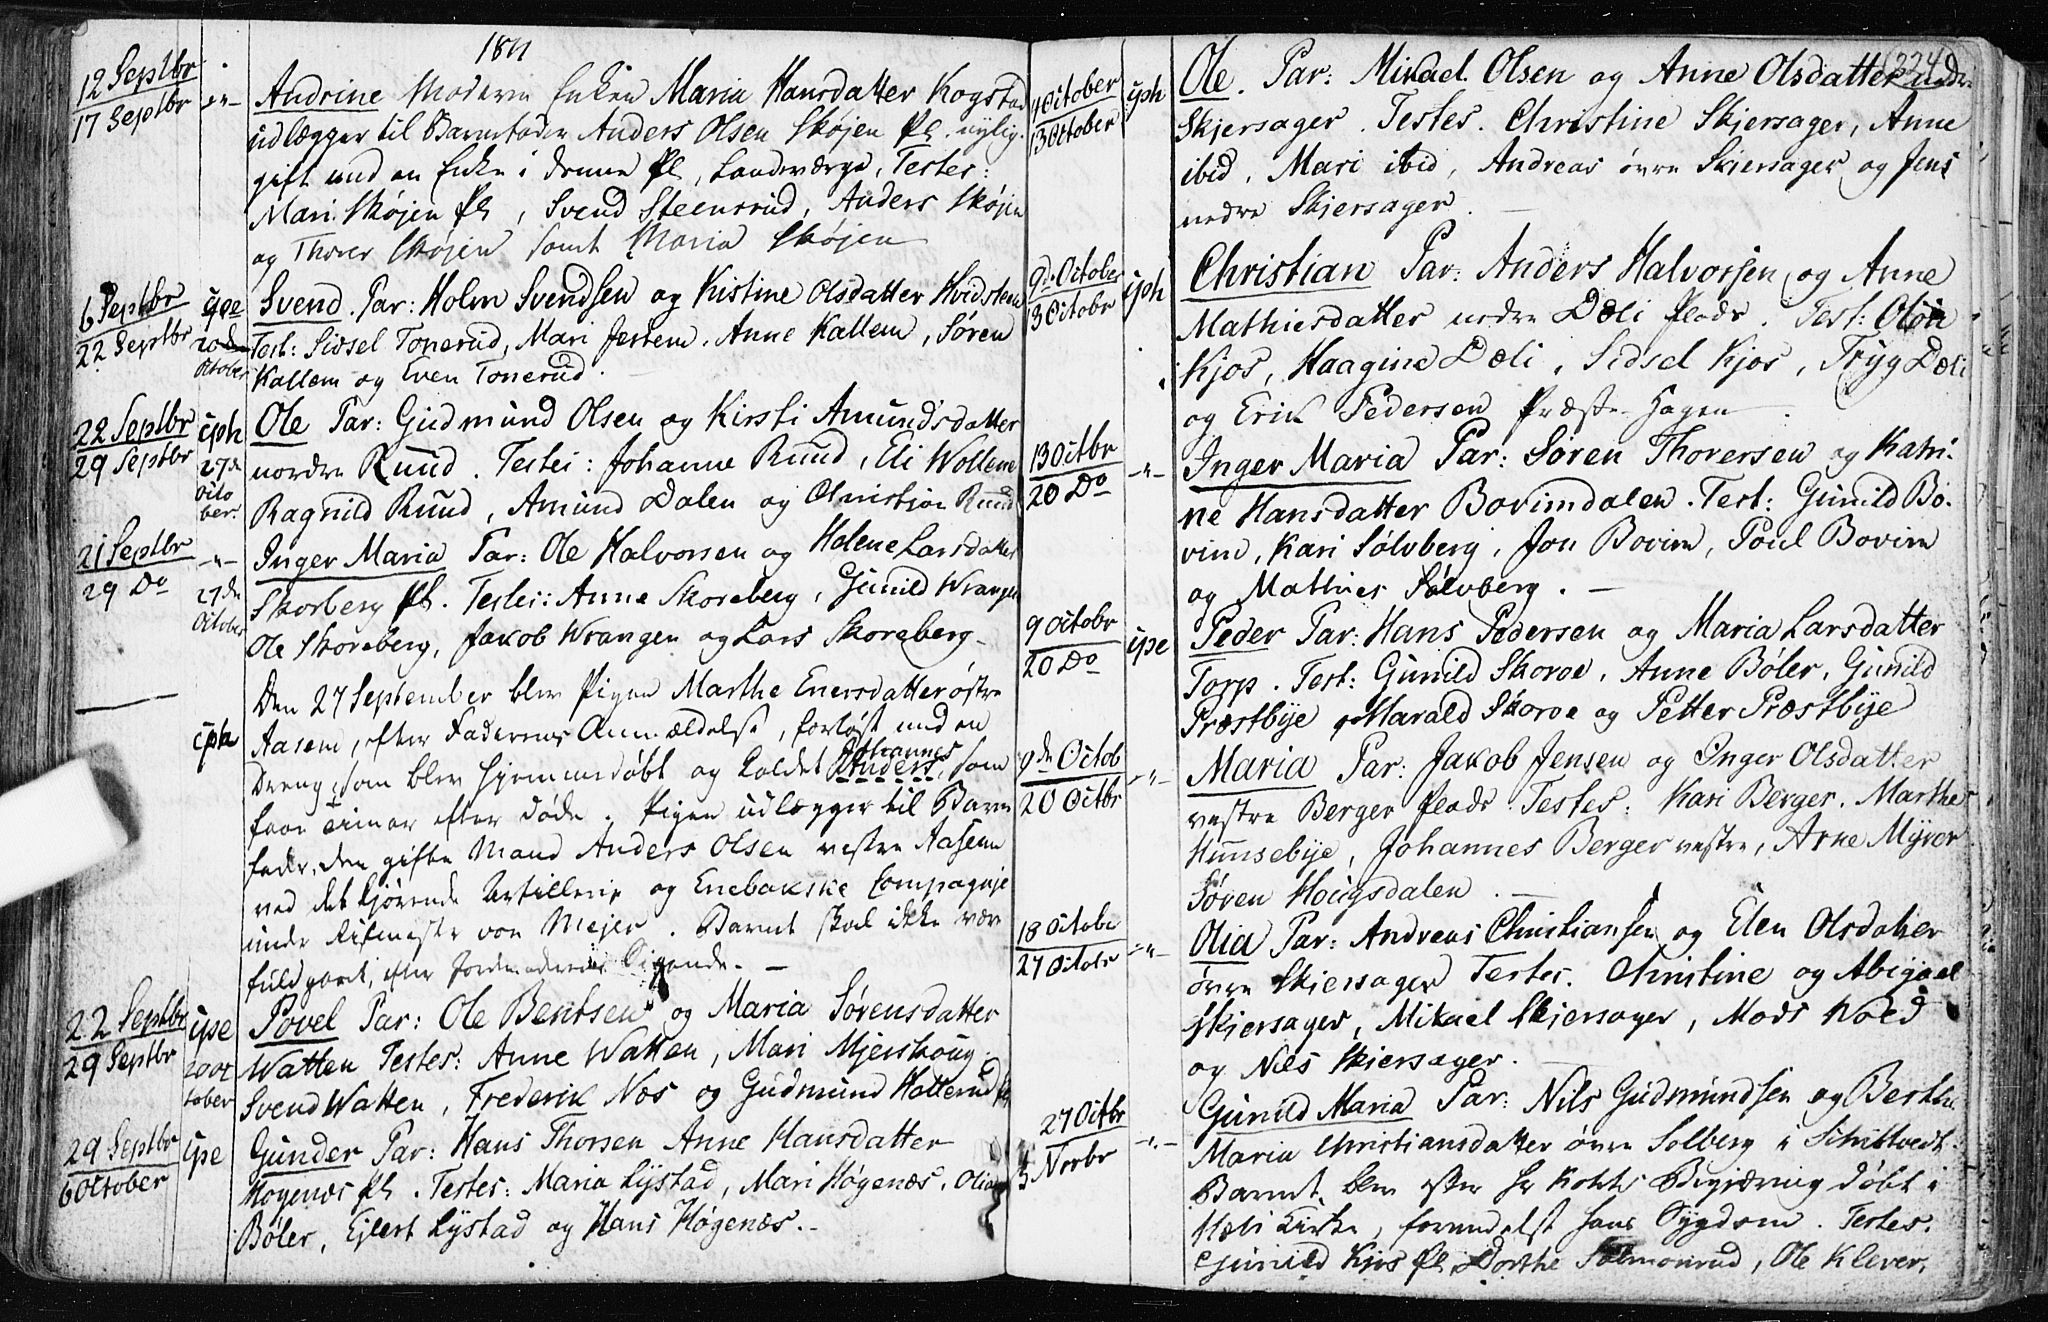 1811
12 Septbr
17 Septbr
Andrine Moderen Enken Maria Hansdatter Kogstad
udlægger til Barnefader Anders Olsen Skøjen Pl. nylig
gift med en Enke i denne Pl, Landværge, Testes:
Mari Skøjen Pl, Svend Steensrud, Anders Skøjen
og Thorer Skøjen samt Maria Skøjen
6 Septbr
22 Septbr
ipe
20de
October
Svend. Par: Holm Svendsen og Kistine Olsdatter Hvidsteen
Test: Sidsel Tonerud, Mari Jertem, Anne Kallem, Søren
Kallem og Even Tonerud.
22 Septbr
29 Septbr
iph
27de
Octo
ber.
Ole Par: Gudmund Olsen og Kirsti Amundsdatter
nordre Ruud. Testes: Johanne Ruud, Eli Wollene
Ragnild Ruud, Amund Dalen og Christian Ruud
21 Septbr
29 Do
-"-
27de
October
Inger Maria Par: Ole Halvorsen og Helene Larsdatter
Skorberg Pl. Testes: Anne Skoreberg, Gunild Wrangen
Ole Skoreberg, Jakob Wrangen og Lars Skoreberg-
iph
Den 27 September blev Pigen Marthe Enersdatter østre
Aasem, efter Faderens Anmældelse, forløst med en
Dreng, som blev hjemmedøbt og kaldet Anders, som
Johannes
faae timer efter døde. Pigen udlægger til Barne
fader, den gifte Mand Anders Olsen vestre Aasem
ved det kjørende Artillerie og Enebakske Compagnje
under Ritmester von Mejer. Barnet skal ikke være
fuldgaaet, efter Jordemoderens Sigende. -
22 Septbr
29 Septbr
ipe
20 Oc
tober
Povel Par: Ole Bentsen og Maria Sørensdatter
Watten Testes: Anne Watten, Mari Mjerskoug
Svend Watten, Frederik Nøs og Gudmund Hatterud Pl
29 Septbr
6 October
ipe
Gunder Par: Hans Thorsen Anne Hansdatter
Høgenæs Pl. Testes: Maria Lystad, Mari Høgenæs, Oliana
Bøler, Ejlert Lystad og Hans Høgenæs.-
224
4 October
13 October
iph
Ole. Par: Mikael Olsen og Anne Olsdatter nedre
Skjersager. Testes. Christine Skjersager, Anne
ibid, Mari ibid, Andreas øvre Skjersager og Jens
nedre Skjersager. -
9de October
13 Octobr
iph
Christian Par: Anders Halvorsen og Anne
Mathiesdatter nedre Dæli Plads. Test: Oløu
Kjos, Haagine Dæli, Sidsel Kjos, Tryg Dæli
og Erik Pedersen Præste-Hagen.
13 Octbr
20 Do
-"-
Inger Maria Par: Søren Thorersen og Katri-
ne Hansdatter Bovimdalen. Test: Gunild Bo-
vim, Kari Sølvberg, Jon Bovim, Poul Bovim
og Mathies Sølvberg. -
9 Octobr
20 Do
ipe
Peder Par: Hans Pedersen og Maria Larsdatter
Torp. Test: Gunild Skoroe, Anne Bøler, Gunild
Præstbye, Harald Skoroe og Petter Præstbye
9de Octob
20 Octbr
-"-
Maria Par: Jakob Jensen og Inger Olsdatter
vestre Berger Plads. Testes: Kari Berger, Marthe
Hunsebye, Johannes Berger vestre, Arne Myrer
Søren Hougsdalen. -
18 Octobr
27 Octobr
-"-
Olia Par: Andreas Christiansen og Elen Olsdatter
øvre Skjersager Testes. Christine og Abigael
Skjersager, Mikael Skjersager, Mads Woed
og Nils Skiersager.
27 Octbr
3 Novbr
-"-
Gunild Maria Par: Nils Gudmundsen og Berthe
Maria Christiansdatter øvre Solberg i Schittvedt.
Barnet blev efter Hr Kohts Begjæring døbt i
Hæli Kirke, formedelst hans Sygdom. Testes.
Gunild Kjos Pl, Dorthe Salmonrud, Ole Klever,